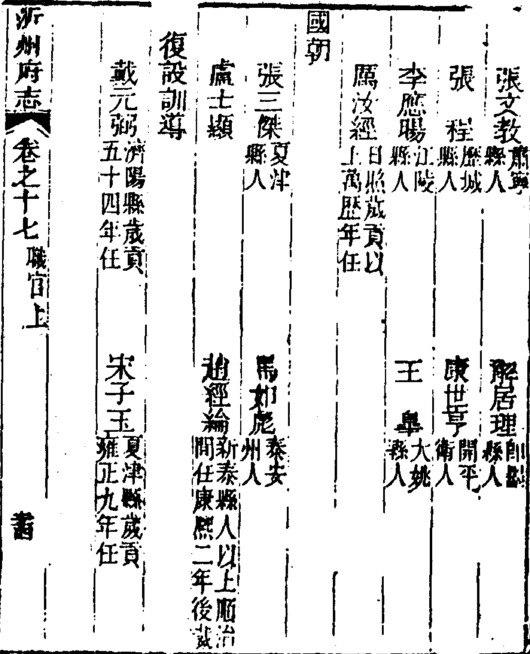 張文教 肅寧縣人 解居理 即墨縣人
張程 歷城縣人 康世亨 開平衛人
李應暘 江陵縣人 王臯 大姚縣人
厲汝經 日照歲貢以上萬歷年任
國朝
張三傑 夏津縣人 馬如彪 泰安州人
盧士顯 趙經綸 新泰縣人以上順治間任康熙二年後裁
復設訓導
戴元弼 濟陽縣歲貢五十四年任 宋子玉 夏津縣歲貢雍正九年任
沂州府志 卷之十七 職官上